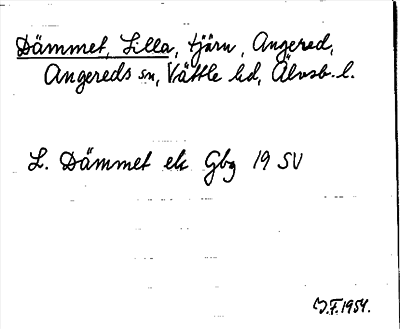 Dämmet, Lilla, tjärn, Angered,
Angereds sn, Vättle hd, Älvsb. l.
L. Dämmet ek Gbg 19 SV
J.F. 1954.